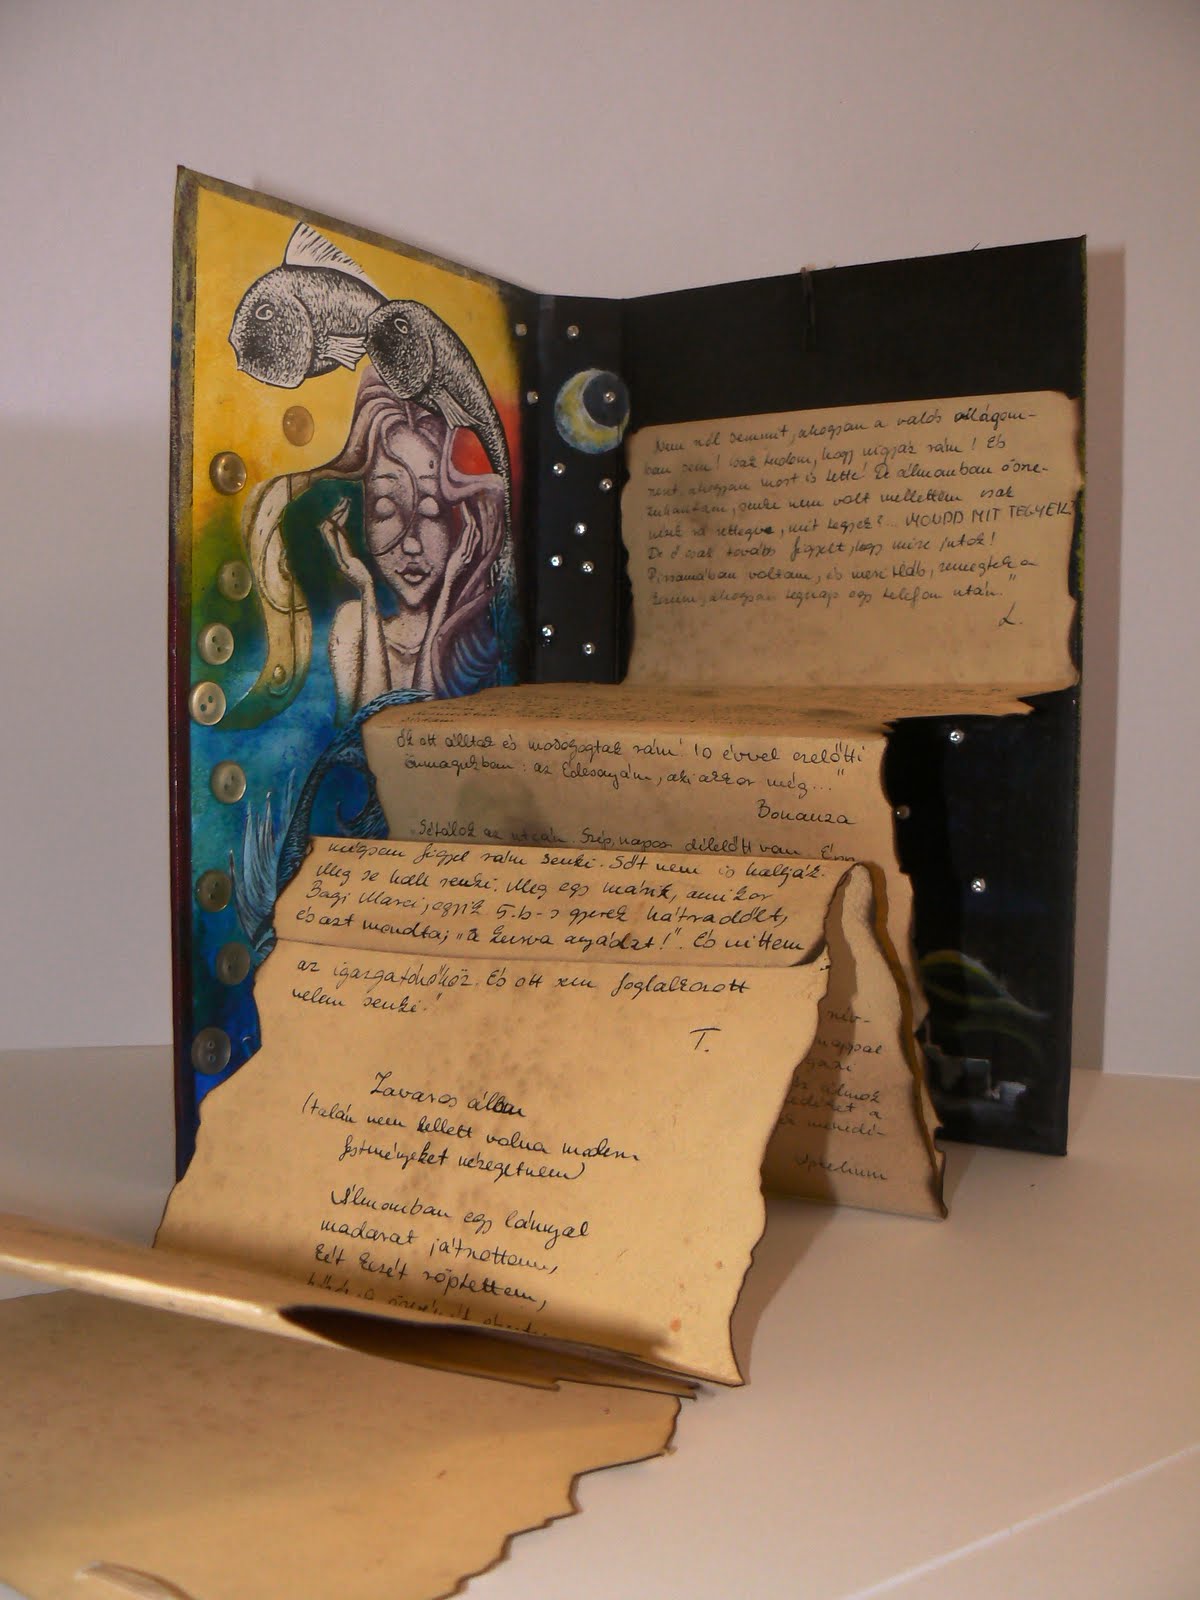 Nem szól semmit, ahogyan a valós világom-
ban sem! Csak tudom, hogy vigyáz rám! És
ahogyan most is tette! De álmomban össze-
zuhantam, senki nem volt mellettem csak
mit tegyek?... MONDD MIT TEGYEK?
De ő csak tovább figyelt, hogy mire jutok!
Pizsamában voltam, és mezítláb, remegtek a
ahogyan tegnap egy telefon után."
L.
Ők ott álltak és mosolyogtak rám! 10 évvel ezelőtti
önmagukban: az Édesanyám, aki akkor még..."
Bonanza
"Sétálok az utcán. Szép, napos délelőtt van. Énrám
mégsem figyel rám senki. Sőt nem is hallják.
Meg se hall senki. Meg egy másik, amikor
Bagi Marci, egyik 5.b-s gyerek hátradőlt,
és azt mondta; „a kurva anyádat!". És vittem
az igazgatónőhöz. És ott sem foglalkozott
velem senki."
T.
Zavaros álom
(talán nem kellett volna modern
festményeket nézegetnem)
Álmomban egy lánnyal
madarat játszottam,
két kezét röptettem,
név-
nappal
álmok
a
menedé-